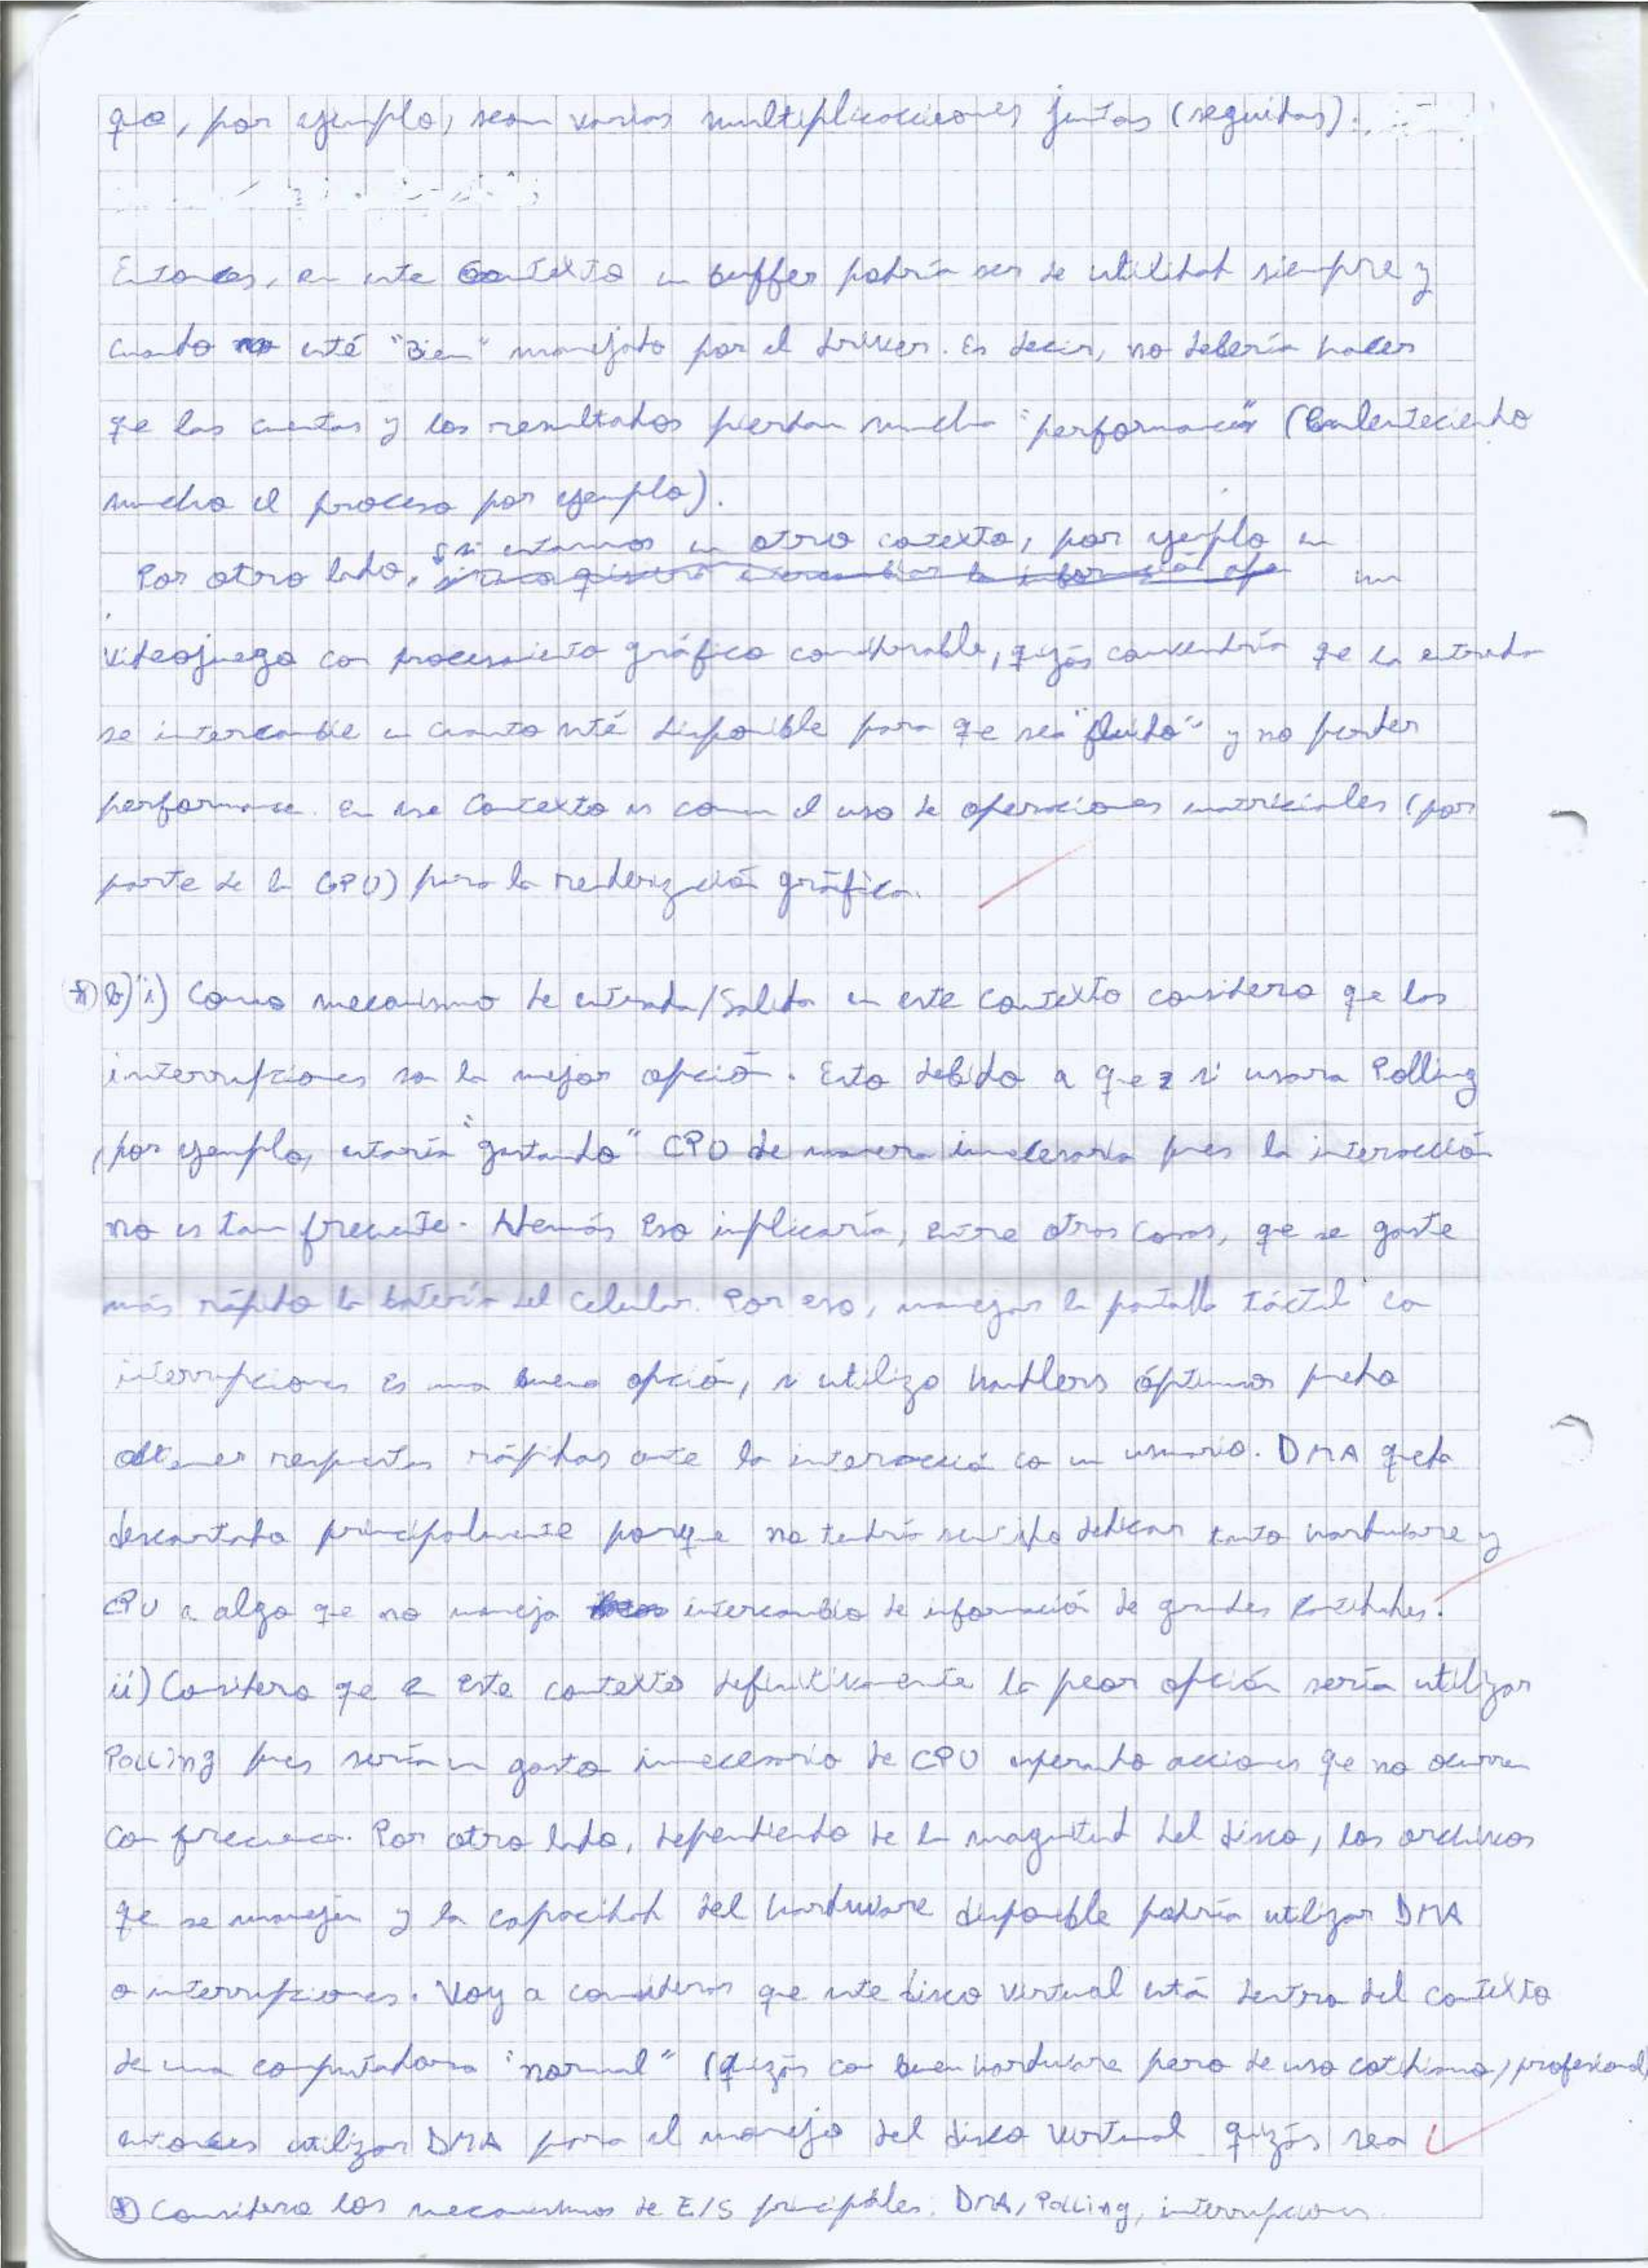 que, por ejemplo, sean varias multiplicacciones juntas (seguidas).
Entonces, en este contexto un buffer podría ser de utilidad siempre y
cuando esté "bien" manejado por el driver. Es decir, no debería hacer
qe las cuentas y los resultados pierdan mucha "performance" (enlenteciendo
mucho el proceso por ejemplo).
si estamos en otro contexto, por ejemplo en
Por otro lado, un
videojuego con procesamiento gráfico considerable, quizás convendría qe la entrada
se intercambie en cuanto esté disponible para qe sea "fluido" y no perder
performance. En ese contexto es común el uso de operaciones matriciales (por
parte de la GPU) para la renderización gráfica.
*) b) i) Como mecanismo de entrada/salida en este contexto considero qe las
interrupciones son la mejor opción. Esto debido a que si usara Polling
, por ejemplo, estaría "gastando" CPU de manera innecesaria pues la interacción
no es tan frecuente. Además eso implicaría, entre otras cosas, qe se gaste
más rápido la batería del celular. Por eso, manejar la pantalla táctil con
interrupciones es una buena opción, si utilizo handlers óptimos puedo
obtener respuestas rápidas ante la interacción con un usuario. DMA queda
descartada principalmente porque no tendría sentido dedicar tanto hardware y
CPU a algo qe no maneja intercambio de información de grandes cantidades.
ii) Considero qe en este contexto definitivamente la peor opción sería utilizar
Polling pues sería un gasto innecesario de CPU esperando acciones qe no ocurren
con frecuencia. Por otro lado, dependiendo de la magnitud del disco, los archivos
qe se manejen y la capacidad del hardware disponible podría utilizar DMA
o interrupciones. Voy a considerar que este disco virtual está dentro del contexto
de una computadora "normal" (quizás con buen hardware pero de uso cotidiano/profesional)
entonces utilizar DMA para el manejo del disco virtual quizás sea
*) Considero los mecanismos de E/S principales: DMA, Polling, interrupciones.